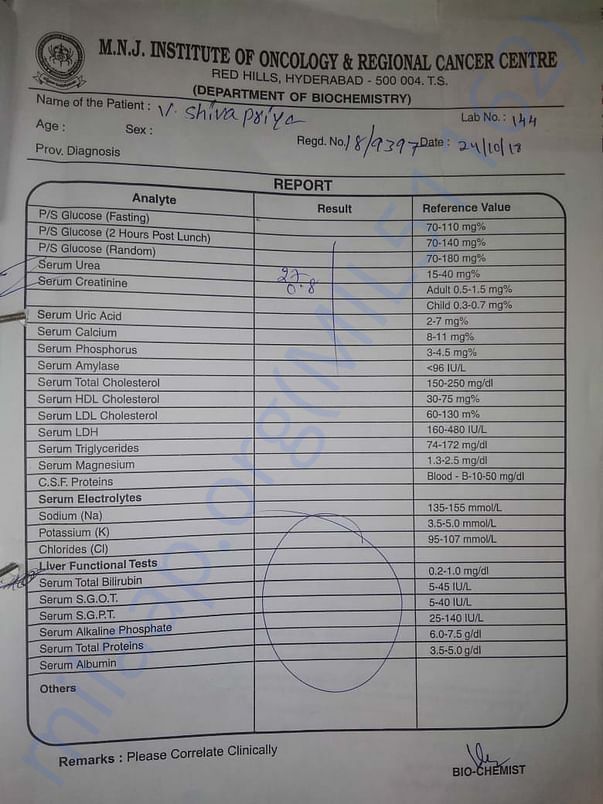 M.N.J. INSTITUTE OF ONCOLOGY & REGIONAL CANCER CENTRE
RED HILLS, HYDERABAD - 500 004. T.S.
(DEPARTMENT OF BIOCHEMISTRY)
Name of the Patient : V. Shivapriya Lab No. : 144
Age : Sex : Regd. No. 18/9397 Date : 24/10/18
Prov. Diagnosis
REPORT
Analyte Result Reference Value
P/S Glucose (Fasting) 70-110 mg%
P/S Glucose (2 Hours Post Lunch) 70-140 mg%
P/S Glucose (Random) 70-180 mg%
Serum Urea 27 15-40 mg%
Serum Creatinine 0.8 Adult 0.5-1.5 mg%
Child 0.3-0.7 mg%
Serum Uric Acid 2-7 mg%
Serum Calcium 8-11 mg%
Serum Phosphorus 3-4.5 mg%
Serum Amylase <96 IU/L
Serum Total Cholesterol 150-250 mg/dl
Serum HDL Cholesterol 30-75 mg%
Serum LDL Cholesterol 60-130 m%
Serum LDH 160-480 IU/L
Serum Triglycerides 74-172 mg/dl
Serum Magnesium 1.3-2.5 mg/dl
C.S.F. Proteins Blood - B-10-50 mg/dl
Serum Electrolytes
Sodium (Na) 135-155 mmol/L
Potassium (K) 3.5-5.0 mmol/L
Chlorides (Cl) 95-107 mmol/L
Liver Functional Tests
Serum Total Bilirubin 0.2-1.0 mg/dl
Serum S.G.O.T. 5-45 IU/L
Serum S.G.P.T. 5-40 IU/L
Serum Alkaline Phosphate 25-140 IU/L
Serum Total Proteins 6.0-7.5 g/dl
Serum Albumin 3.5-5.0 g/dl
Others
Remarks : Please Correlate Clinically
BIO-CHEMIST